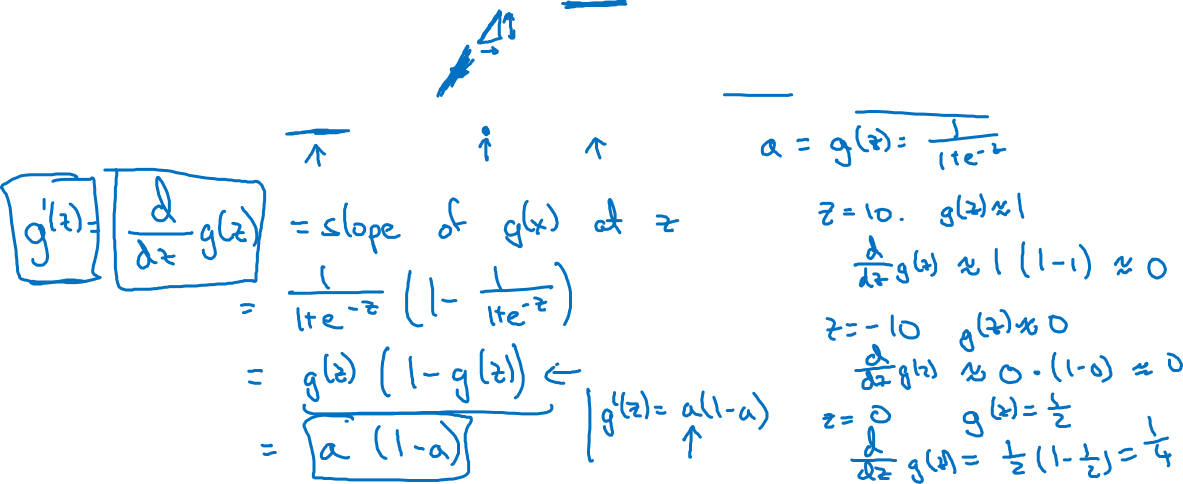 a = g(z) = 1/(1+e^-z)
g'(z) = d/dz g(z) = slope of g(x) at z
= 1/(1+e^-z) (1 - 1/(1+e^-z))
= g(z) (1 - g(z)) ←
= a (1-a)
g'(z) = a(1-a)
z = 10. g(z) ≈ 1
d/dz g(z) ≈ 1 (1-1) ≈ 0
z = -10 g(z) ≈ 0
d/dz g(z) ≈ 0 · (1-0) ≈ 0
z = 0 g(z) = 1/2
d/dz g(z) = 1/2 (1 - 1/2) = 1/4